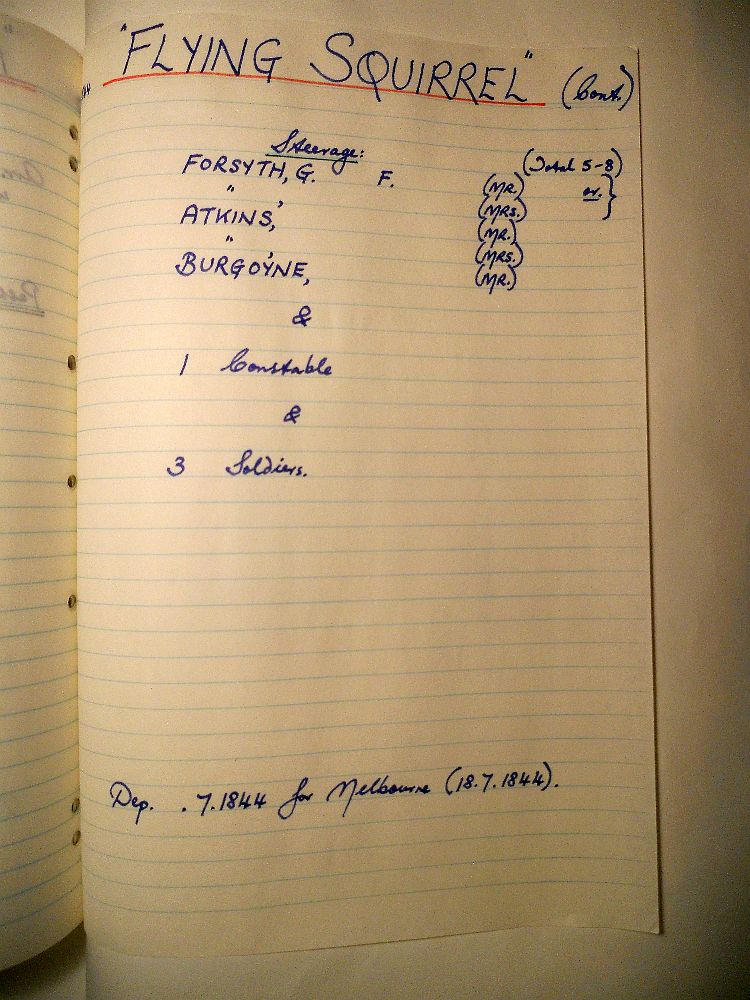 "FLYING SQUIRREL" (Cont.)
Steerage: (Total 5-8)
FORSYTH, G. F. (MR.) or. }
" , (MRS.)
ATKINS, (MR.)
" , (MRS.)
BURGOYNE, (MR.)
&
1 Constable
&
3 Soldiers.
Dep. . 7.1844 for Melbourne (18.7.1844).